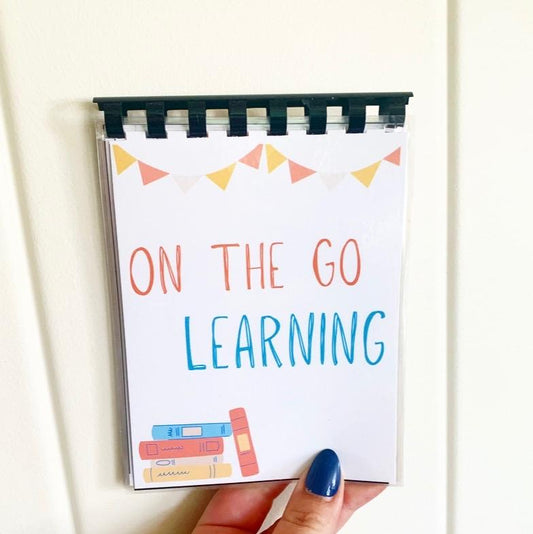 ON THE GO
LEARNING